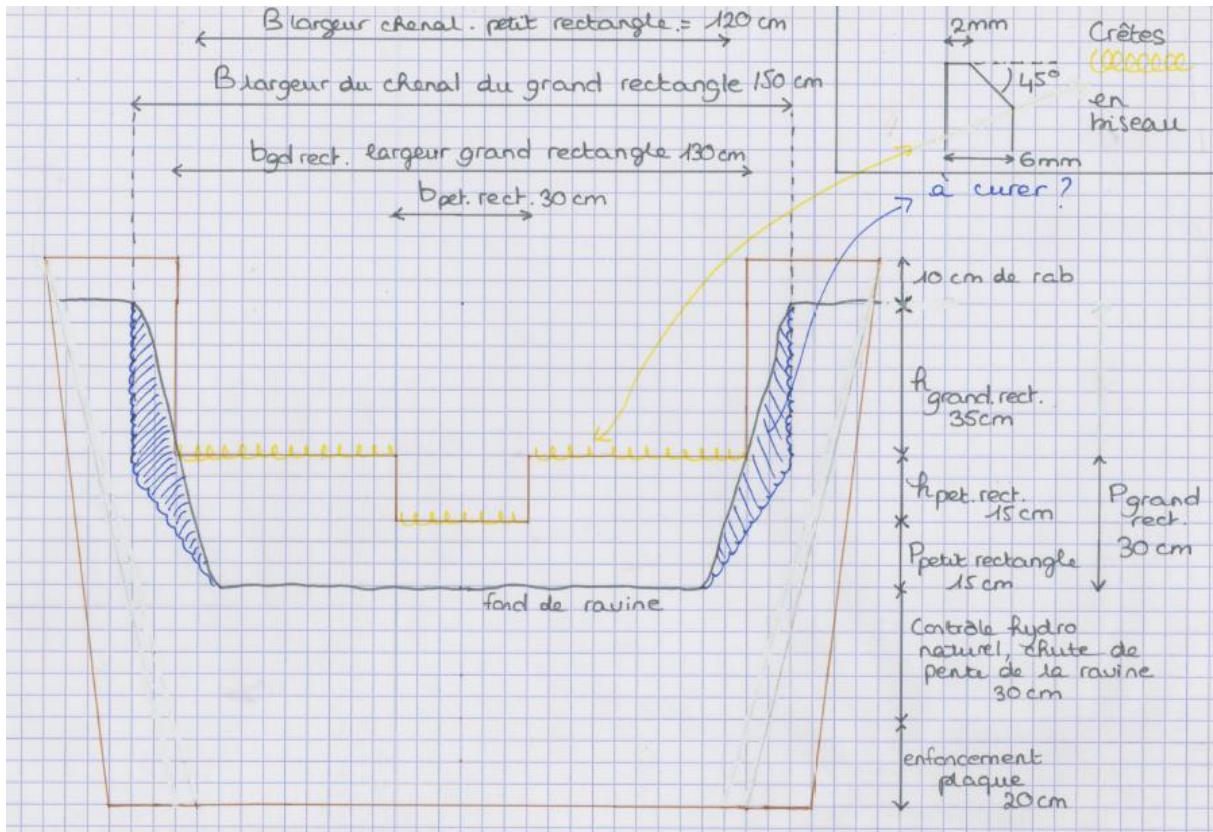 B largeur chenal. petit rectangle. = 120 cm
B largeur du chenal du grand rectangle 150 cm
bgd rect. largeur grand rectangle 130 cm
bpet. rect. 30 cm
2mm
45°
6mm
Crêtes
en
biseau
à curer ?
10 cm de rab
hgrand.rect.
35cm
hpet. rect.
15 cm
Ppetit rectangle
15 cm
Pgrand
rect.
30 cm
fond de ravine
Contrôle hydro
naturel, chute de
pente de la ravine
30 cm
enfoncement
plaque
20 cm